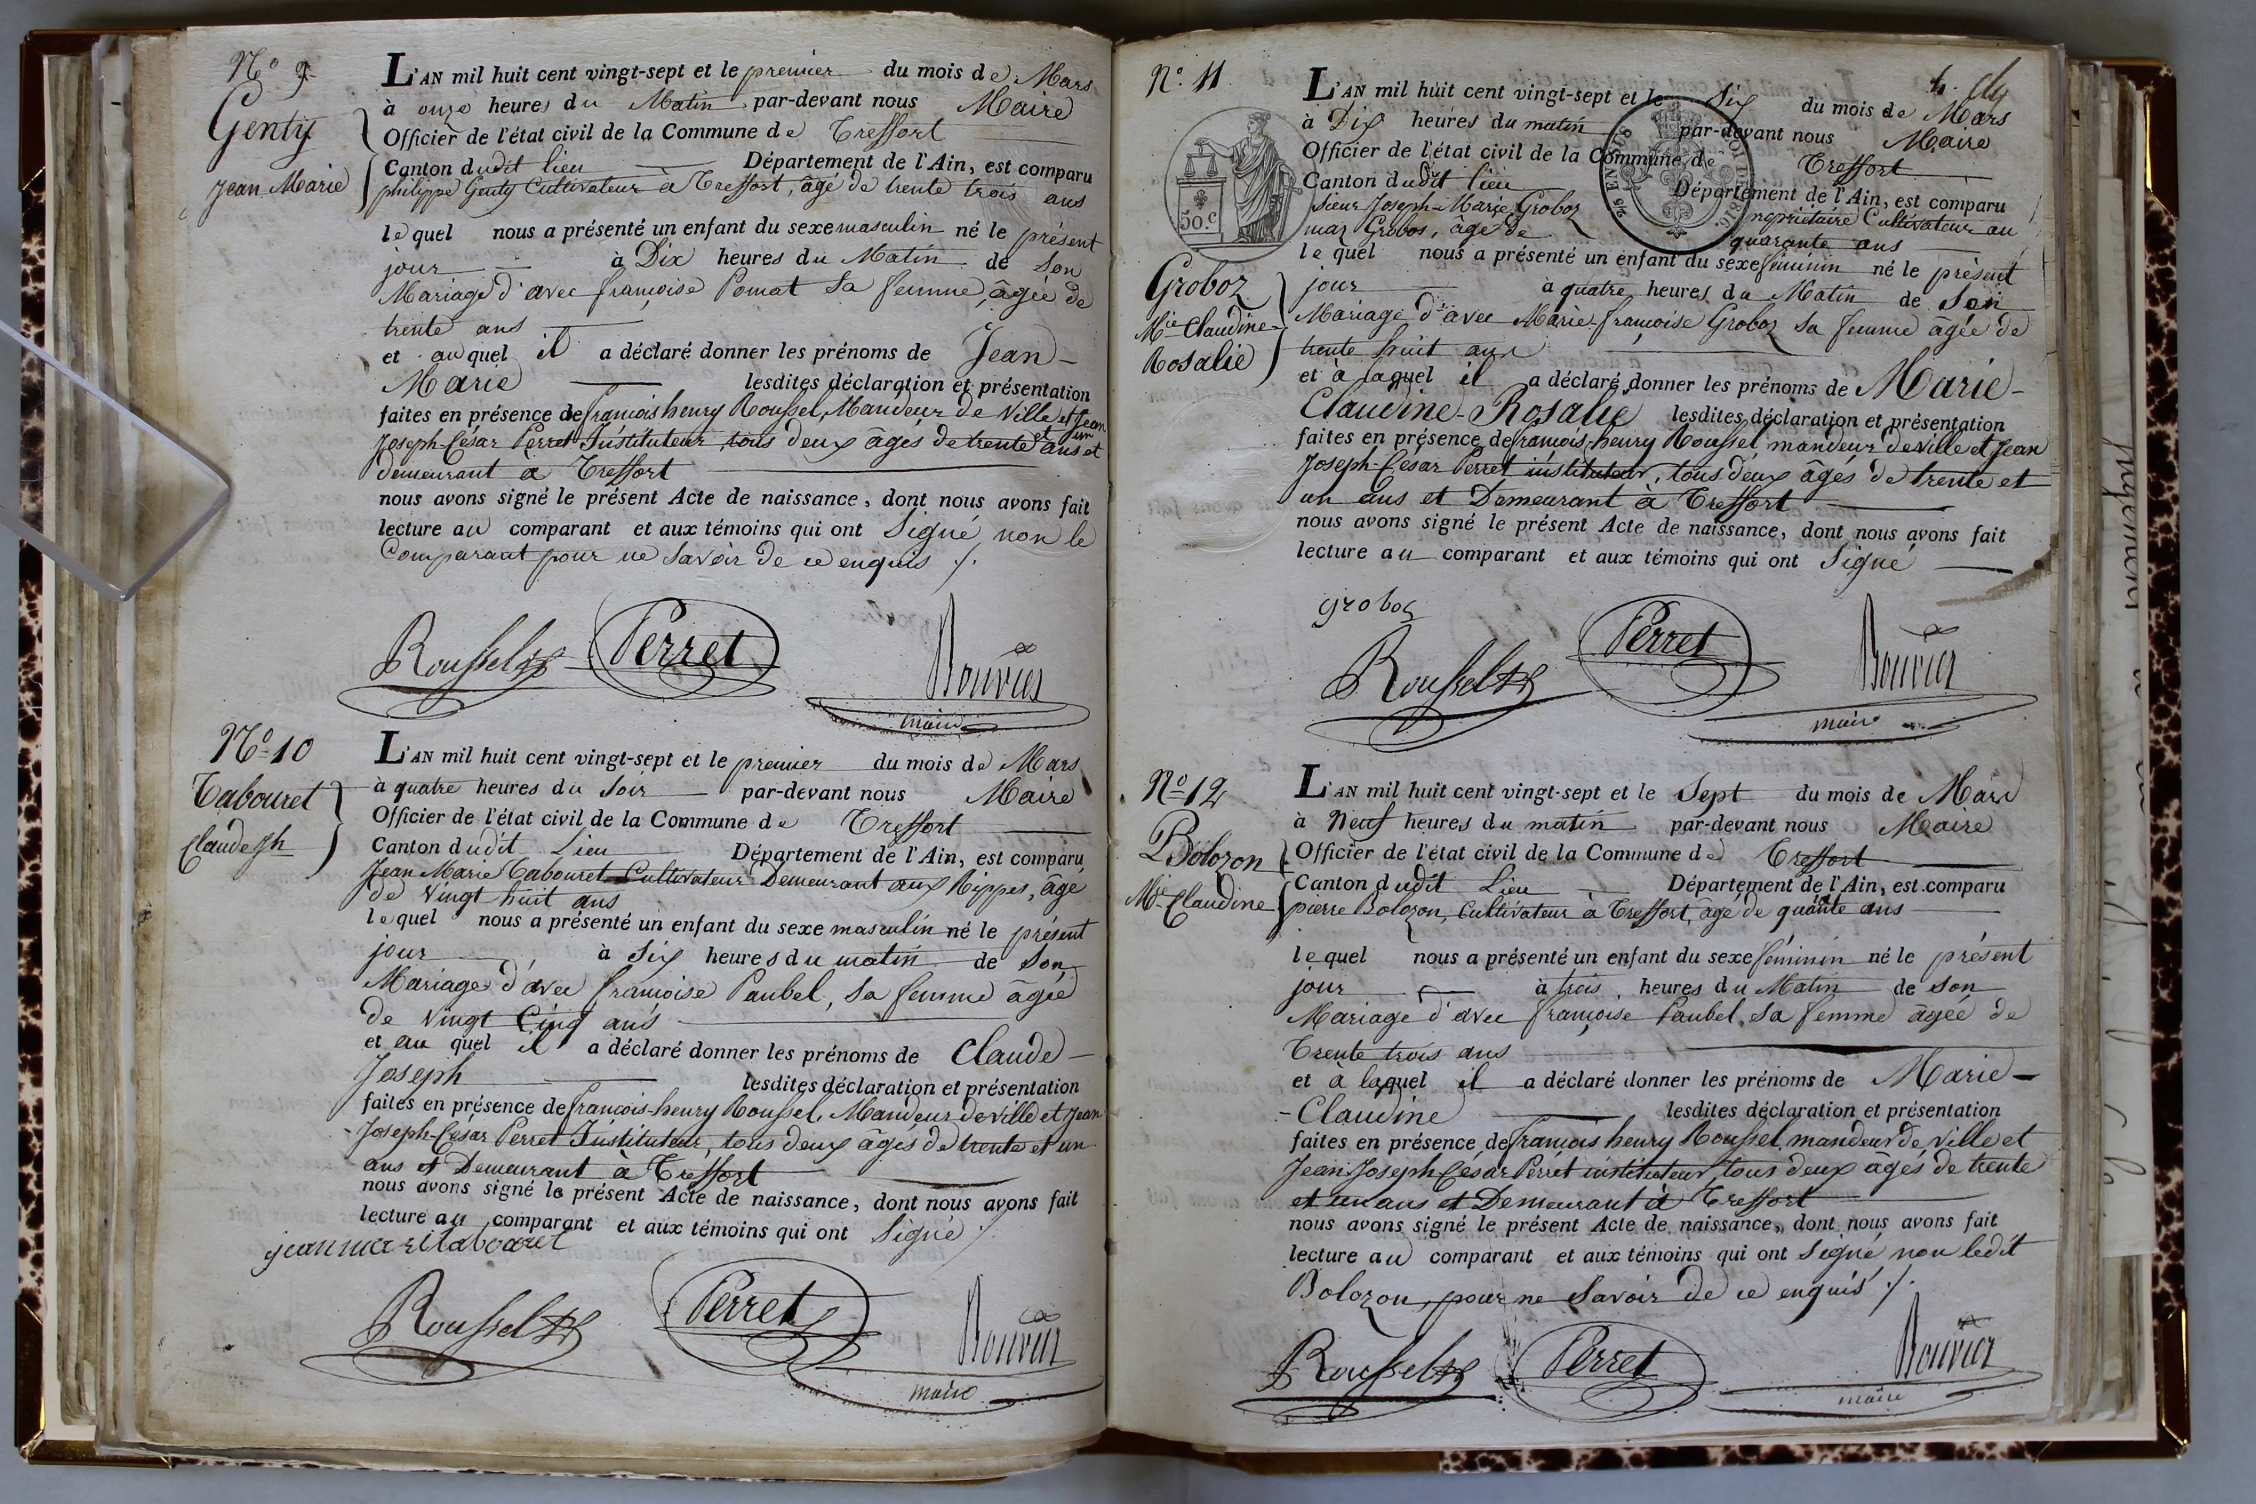 N° 9
Genty
Jean Marie
L'AN mil huit cent vingt-sept et le premier du mois de Mars
à onze heures du Matin par-devant nous Maire
Officier de l'état civil de la Commune de Treffort
Canton dudit lieu Département de l'Ain, est comparu
philippe Genty Cultivateur à Treffort, âgé de trente trois ans
lequel nous a présenté un enfant du sexe masculin né le présent
jour à Dix heures du Matin de son
Mariage d'avec françoise Pomat sa femme, âgée de
trente ans
et auquel il a déclaré donner les prénoms de Jean-
Marie lesdites déclaration et présentation
faites en présence de françois henry Roussel, Mandeur de Ville et Jean
Joseph-César Perret Instituteur, tous deux âgés de trente et un ans et
demeurant à Treffort
nous avons signé le présent Acte de naissance, dont nous avons fait
lecture au comparant et aux témoins qui ont Signé, non le
Comparant pour ne savoir de ce enquis ./.
Roussel Perret Bouvier
maire
N° 10
Tabouret
Claude Jh
L'AN mil huit cent vingt-sept et le premier du mois de Mars
à quatre heures du Soir par-devant nous Maire
Officier de l'état civil de la Commune de Treffort
Canton dudit Lieu Département de l'Ain, est comparu
Jean Marie Tabouret Cultivateur Demeurant aux Rippes, âgé
de Vingt huit ans
lequel nous a présenté un enfant du sexe masculin né le présent
jour à Six heures du matin de son
Mariage d'avec françoise Paubel, sa femme âgée
de Vingt Cinq ans
et au quel il a déclaré donner les prénoms de Claude-
Joseph lesdites déclaration et présentation
faites en présence de francois-henry Roussel, Mandeur de Ville et Jean
Joseph-César Perret Instituteur, tous deux âgés de trente et un
ans et Demeurant à Treffort
nous avons signé le présent Acte de naissance, dont nous avons fait
lecture au comparant et aux témoins qui ont Signé ./.
jean marie tabouret
Roussel Perret Bouvier
maire
N° 11
50.c
Groboz
Mie Claudine-
Rosalie
L'AN mil huit cent vingt-sept et le Six du mois de Mars
à Dix heures du matin par-devant nous Maire
Officier de l'état civil de la Commune de Treffort
Canton dudit lieu Département de l'Ain, est comparu
Sieur Joseph-Marie Groboz propriétaire Cultivateur au
mas Grobos, âgé de quarante ans
lequel nous a présenté un enfant du sexe féminin né le présent
jour à quatre heures du Matin de Son
Mariage d'avec Marie-françoise Groboz sa femme agée de
trente huit ans
et à laquel il a déclaré donner les prénoms de Marie-
Claudine-Rosalie lesdites déclaration et présentation
faites en présence de francois-henry Roussel, mandeur de Ville et Jean
Joseph-César Perret instituteur, tous deux âgés de trente et
un ans et Demeurant à Treffort
nous avons signé le présent Acte de naissance, dont nous avons fait
lecture au comparant et aux témoins qui ont Signé
groboz
Roussel Perret Bouvier
maire
N° 12
Bolozon
Mie Claudine
L'AN mil huit cent vingt-sept et le Sept du mois de Mars
à Neuf heures du matin par-devant nous Maire
Officier de l'état civil de la Commune de Treffort
Canton dudit Lieu Département de l'Ain, est comparu
pierre Bolozon, Cultivateur à Treffort, âgé de quarante ans
lequel nous a présenté un enfant du sexe féminin né le présent
jour à trois heures du Matin de son
Mariage d'avec françoise Paubel, sa femme âgée de
Trente trois ans
et à laquel il a déclaré donner les prénoms de Marie-
-Claudine lesdites déclaration et présentation
faites en présence de francois henry Roussel, mandeur de Ville et
Jean Joseph-César Perret instituteur, tous deux âgés de trente
et un ans et Demeurant à Treffort
nous avons signé le présent Acte de naissance, dont nous avons fait
lecture au comparant et aux témoins qui ont signé, non ledit
Bolozon, pour ne Savoir de ce enquis ./.
Roussel Perret Bouvier
maire